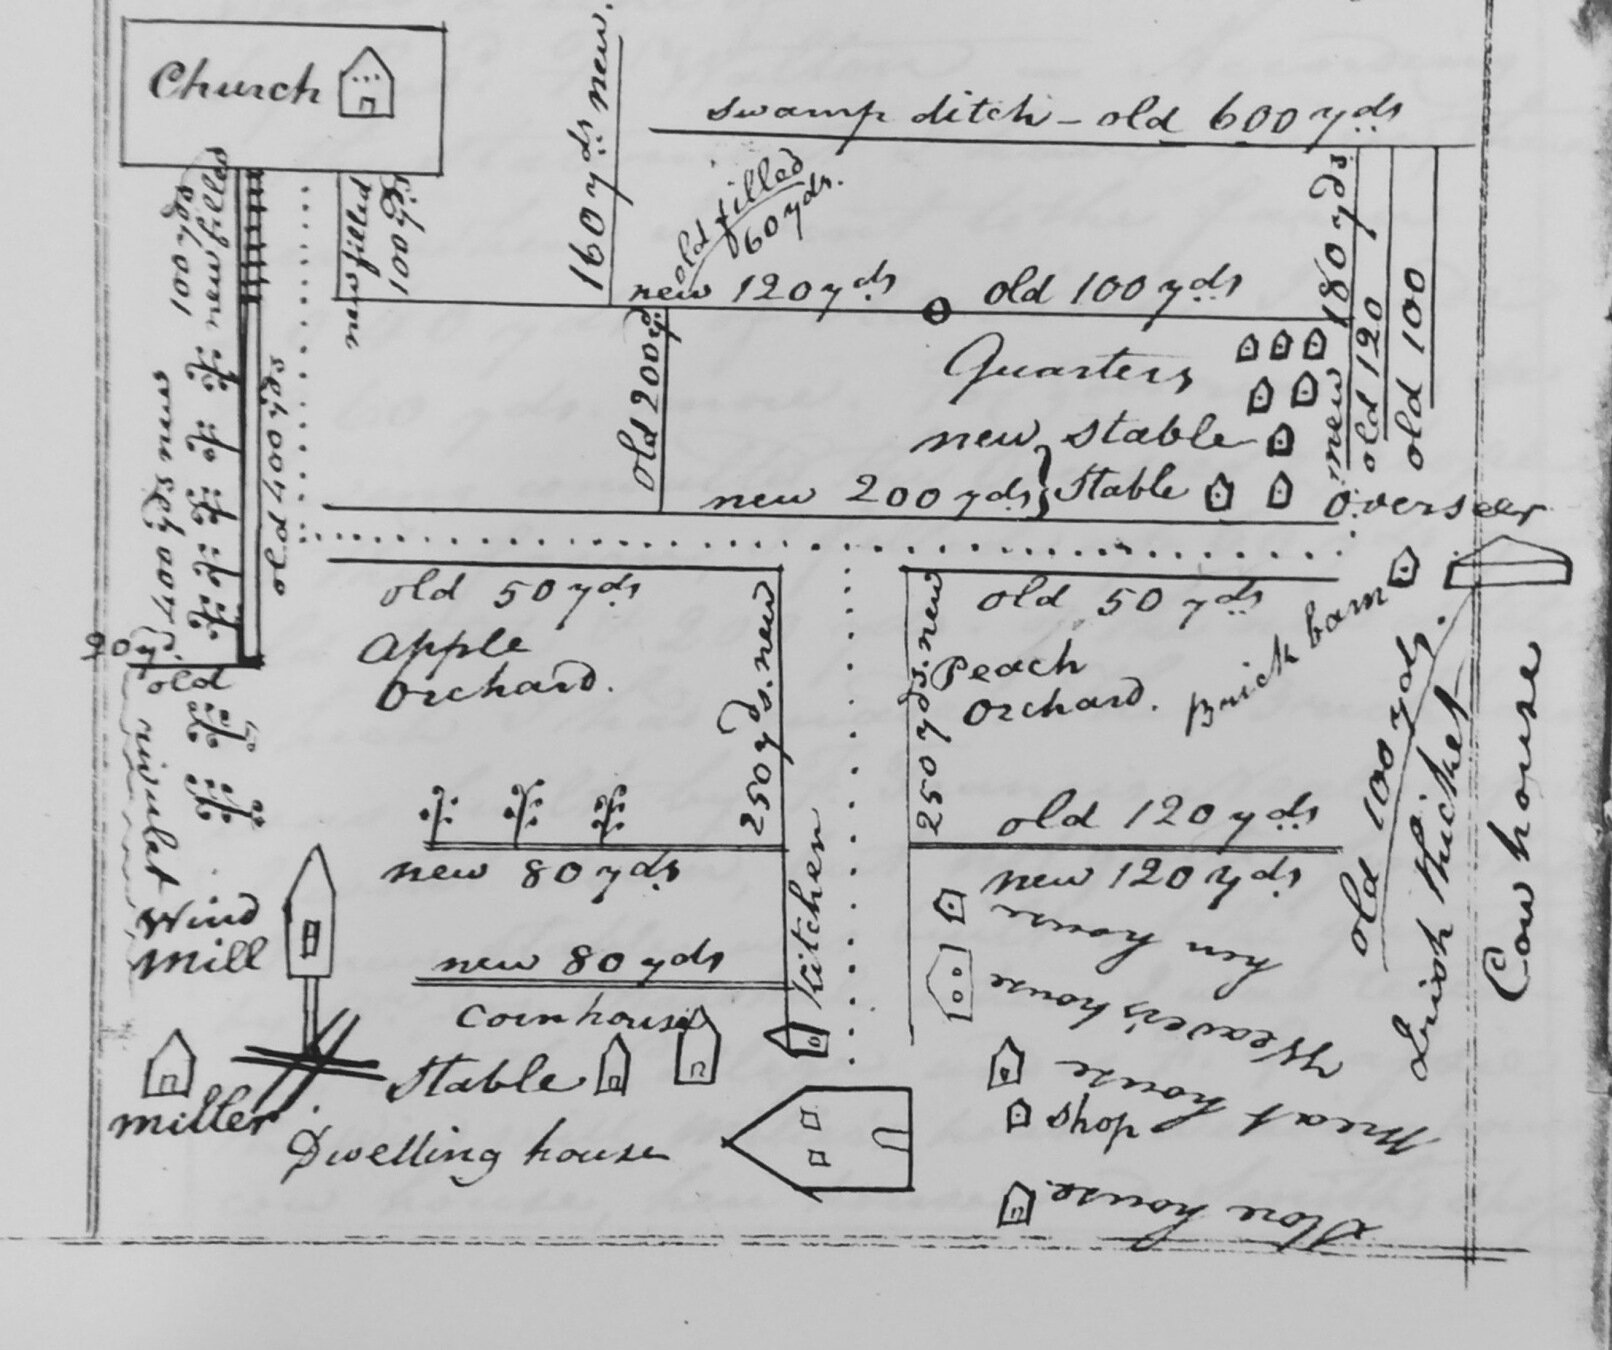 Church
160 yds new.
swamp ditch - old 600 yds
100 yds
new filled
new filled
100 yds
old filled
60 yds.
new 120 yds
old 100 yds
new 180 yds
old 120
old 100
old 200 yd
Quarters
new stable
new 200 yds
Stable
overseer
new 400 yds
old 400 yds
20 yd.
old
rivulet
old 50 yds
Apple
Orchard.
250 yds. new
250 yds. new
old 50 yds
Peach
Orchard.
Brick barn
old 100 yds.
thicket
Cow house
new 80 yds
kitchen
old 120 yds
new 120 yds
hen house
Wind
Mill
new 80 yds
Cornhouse
Weaver's house
Stable
meat house
miller
shop
Dwelling house
Store house.